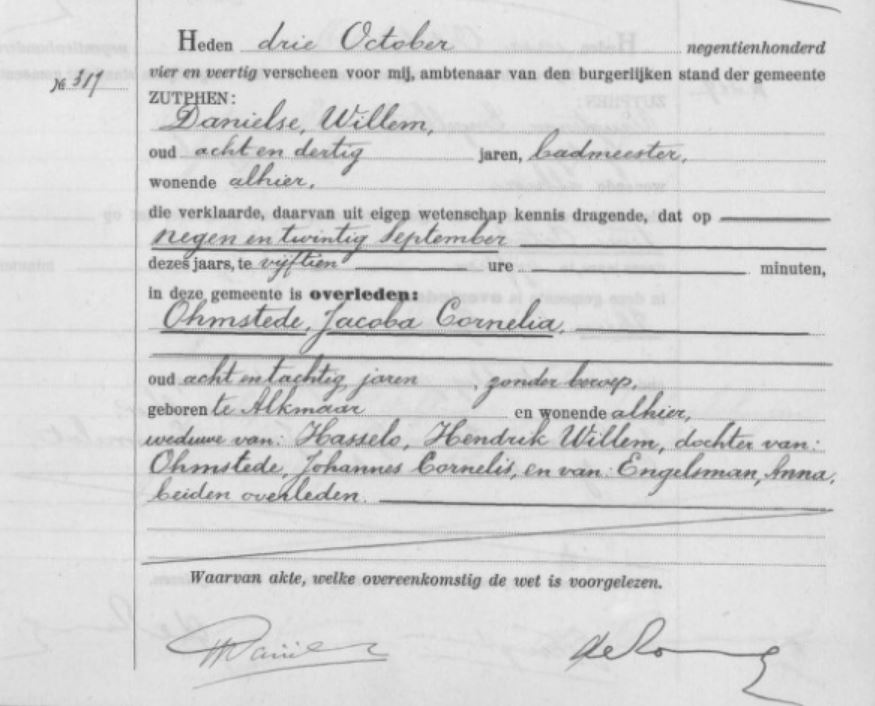 Heden drie October negentienhonderd
№ 317
vier en veertig verscheen voor mij, ambtenaar van den burgerlijken stand der gemeente
ZUTPHEN:
Danielse, Willem,
oud acht en dertig jaren, badmeester,
wonende alhier,
die verklaarde, daarvan uit eigen wetenschap kennis dragende, dat op
negen en twintig September
dezes jaars, te vijftien ure minuten,
in deze gemeente is overleden:
Ohmstede, Jacoba Cornelia,
oud acht en tachtig jaren, zonder beroep,
geboren te Alkmaar en wonende alhier,
weduwe van: Hasselo, Hendrik Willem, dochter van:
Ohmstede, Johannes Cornelis, en van: Engelsman, Anna,
beiden overleden.
Waarvan akte, welke overeenkomstig de wet is voorgelezen.